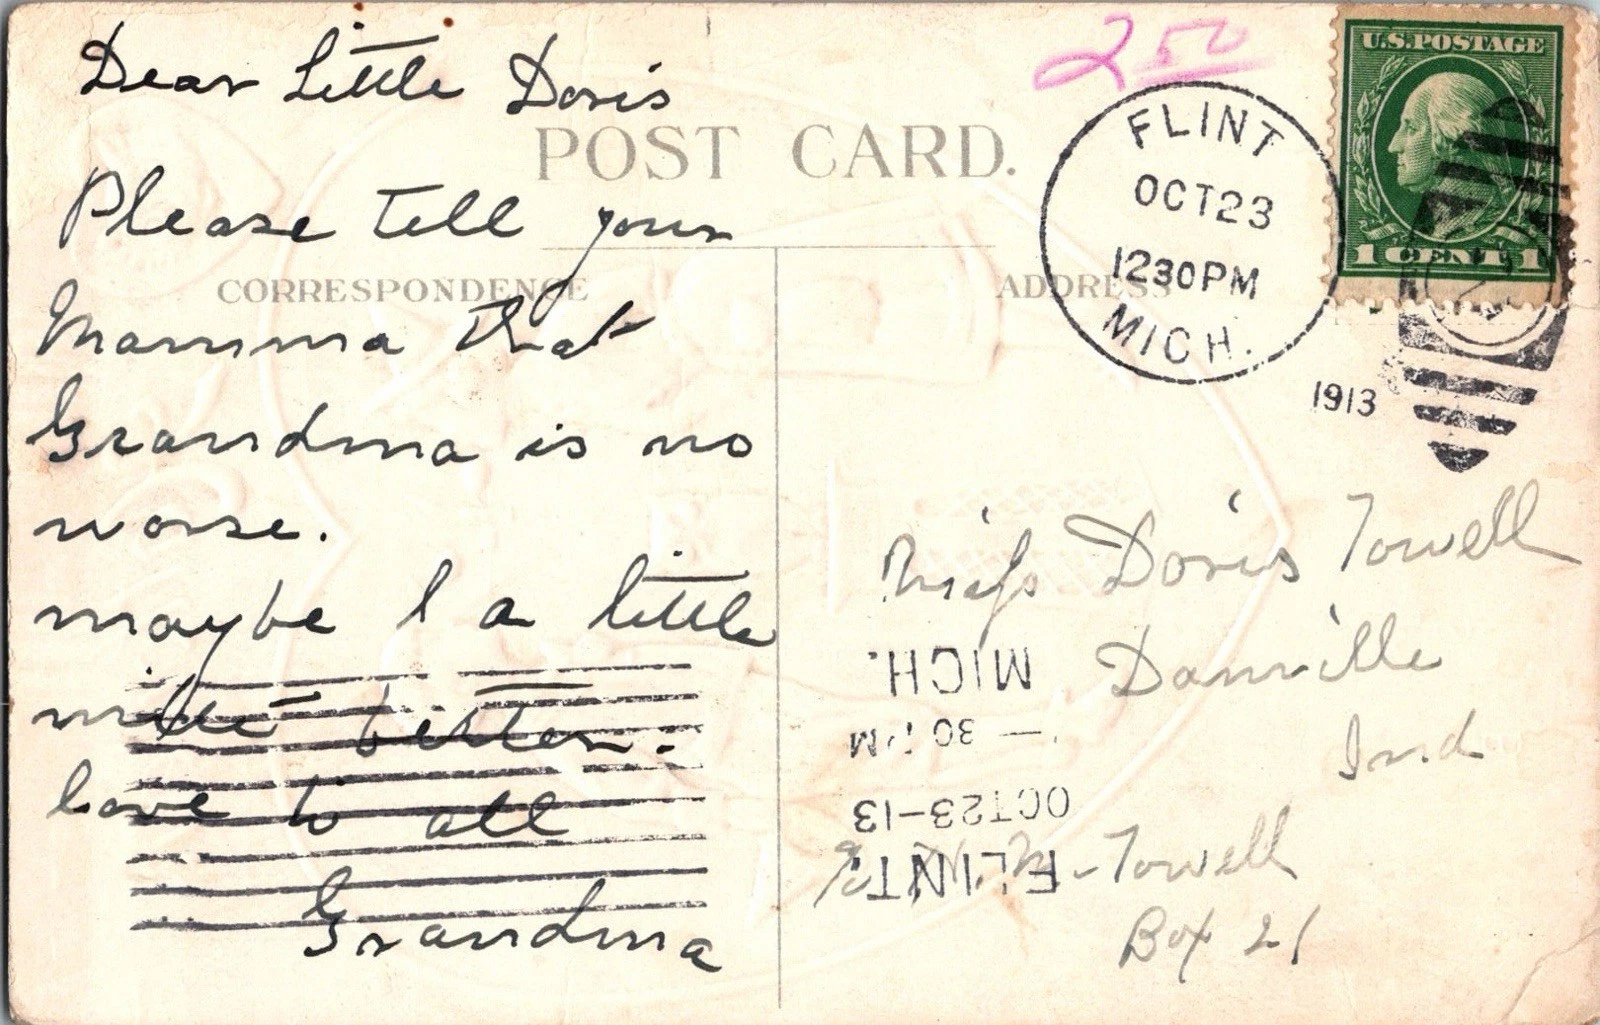 Dear Little Doris
Please tell your
Mamma that
Grandma is no
worse.
maybe I a little
mite better.
love to all
Grandma
POST CARD.
CORRESPONDENCE
ADDRESS
2 50
FLINT
OCT 23
1230 PM
MICH.
1913
U.S. POSTAGE
1 CENT 1
Miss Doris Towell
Danville
Ind
Towell
Box 21
FLINT,
OCT 23-13
30 PM
MICH.